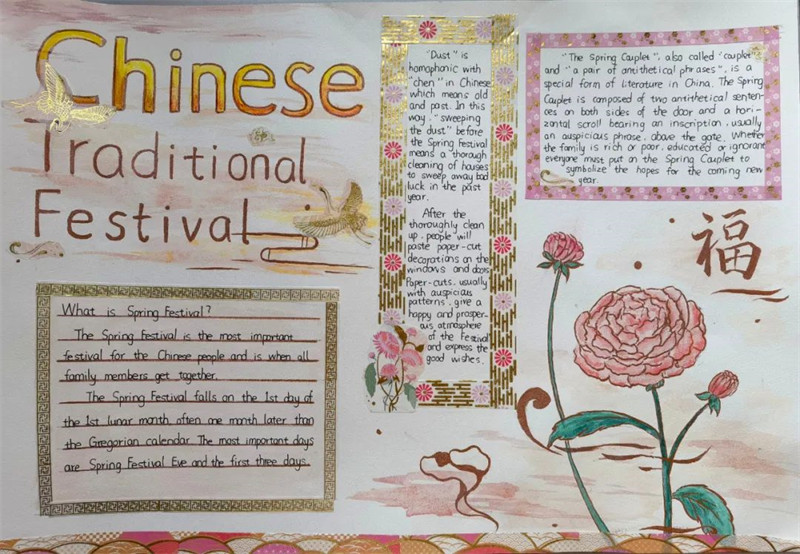 Chinese
Traditional
Festival
What is Spring Festival?
The Spring Festival is the most important
festival for the Chinese people and is when all
family members get together.
The Spring Festival falls on the 1st day of
the 1st lunar month often one month later than
the Gregorian calendar. The most important days
are Spring Festival Eve and the first three days.
"Dust" is
homophonic with
"chen" in Chinese
which means old
and past. In this
way, "sweeping
the dust" before
the Spring Festival
means a thorough
cleaning of houses
to sweep away bad
luck in the past
year.
After the
thoroughly clean
up, people will
paste paper-cut
decorations on the
windows and doors
Paper-cuts, usually
with auspicious
patterns, give a
happy and prosper-
ous atmosphere
of the Festival
and express the
good wishes.
"The Spring Cauplet", also called "couplet"
and "a pair of antithetical phrases", is a
special form of Literature in China. The Spring
Cauplet is composed of two antithetical senten-
ces on both sides of the door and a hori-
zontal scroll bearing an inscription, usually
an auspicious phrase, above the gate. Whether
the family is rich or poor, educated or ignorant
everyone must put on the Spring Cauplet to
symbolize the hopes for the coming new
year.
福